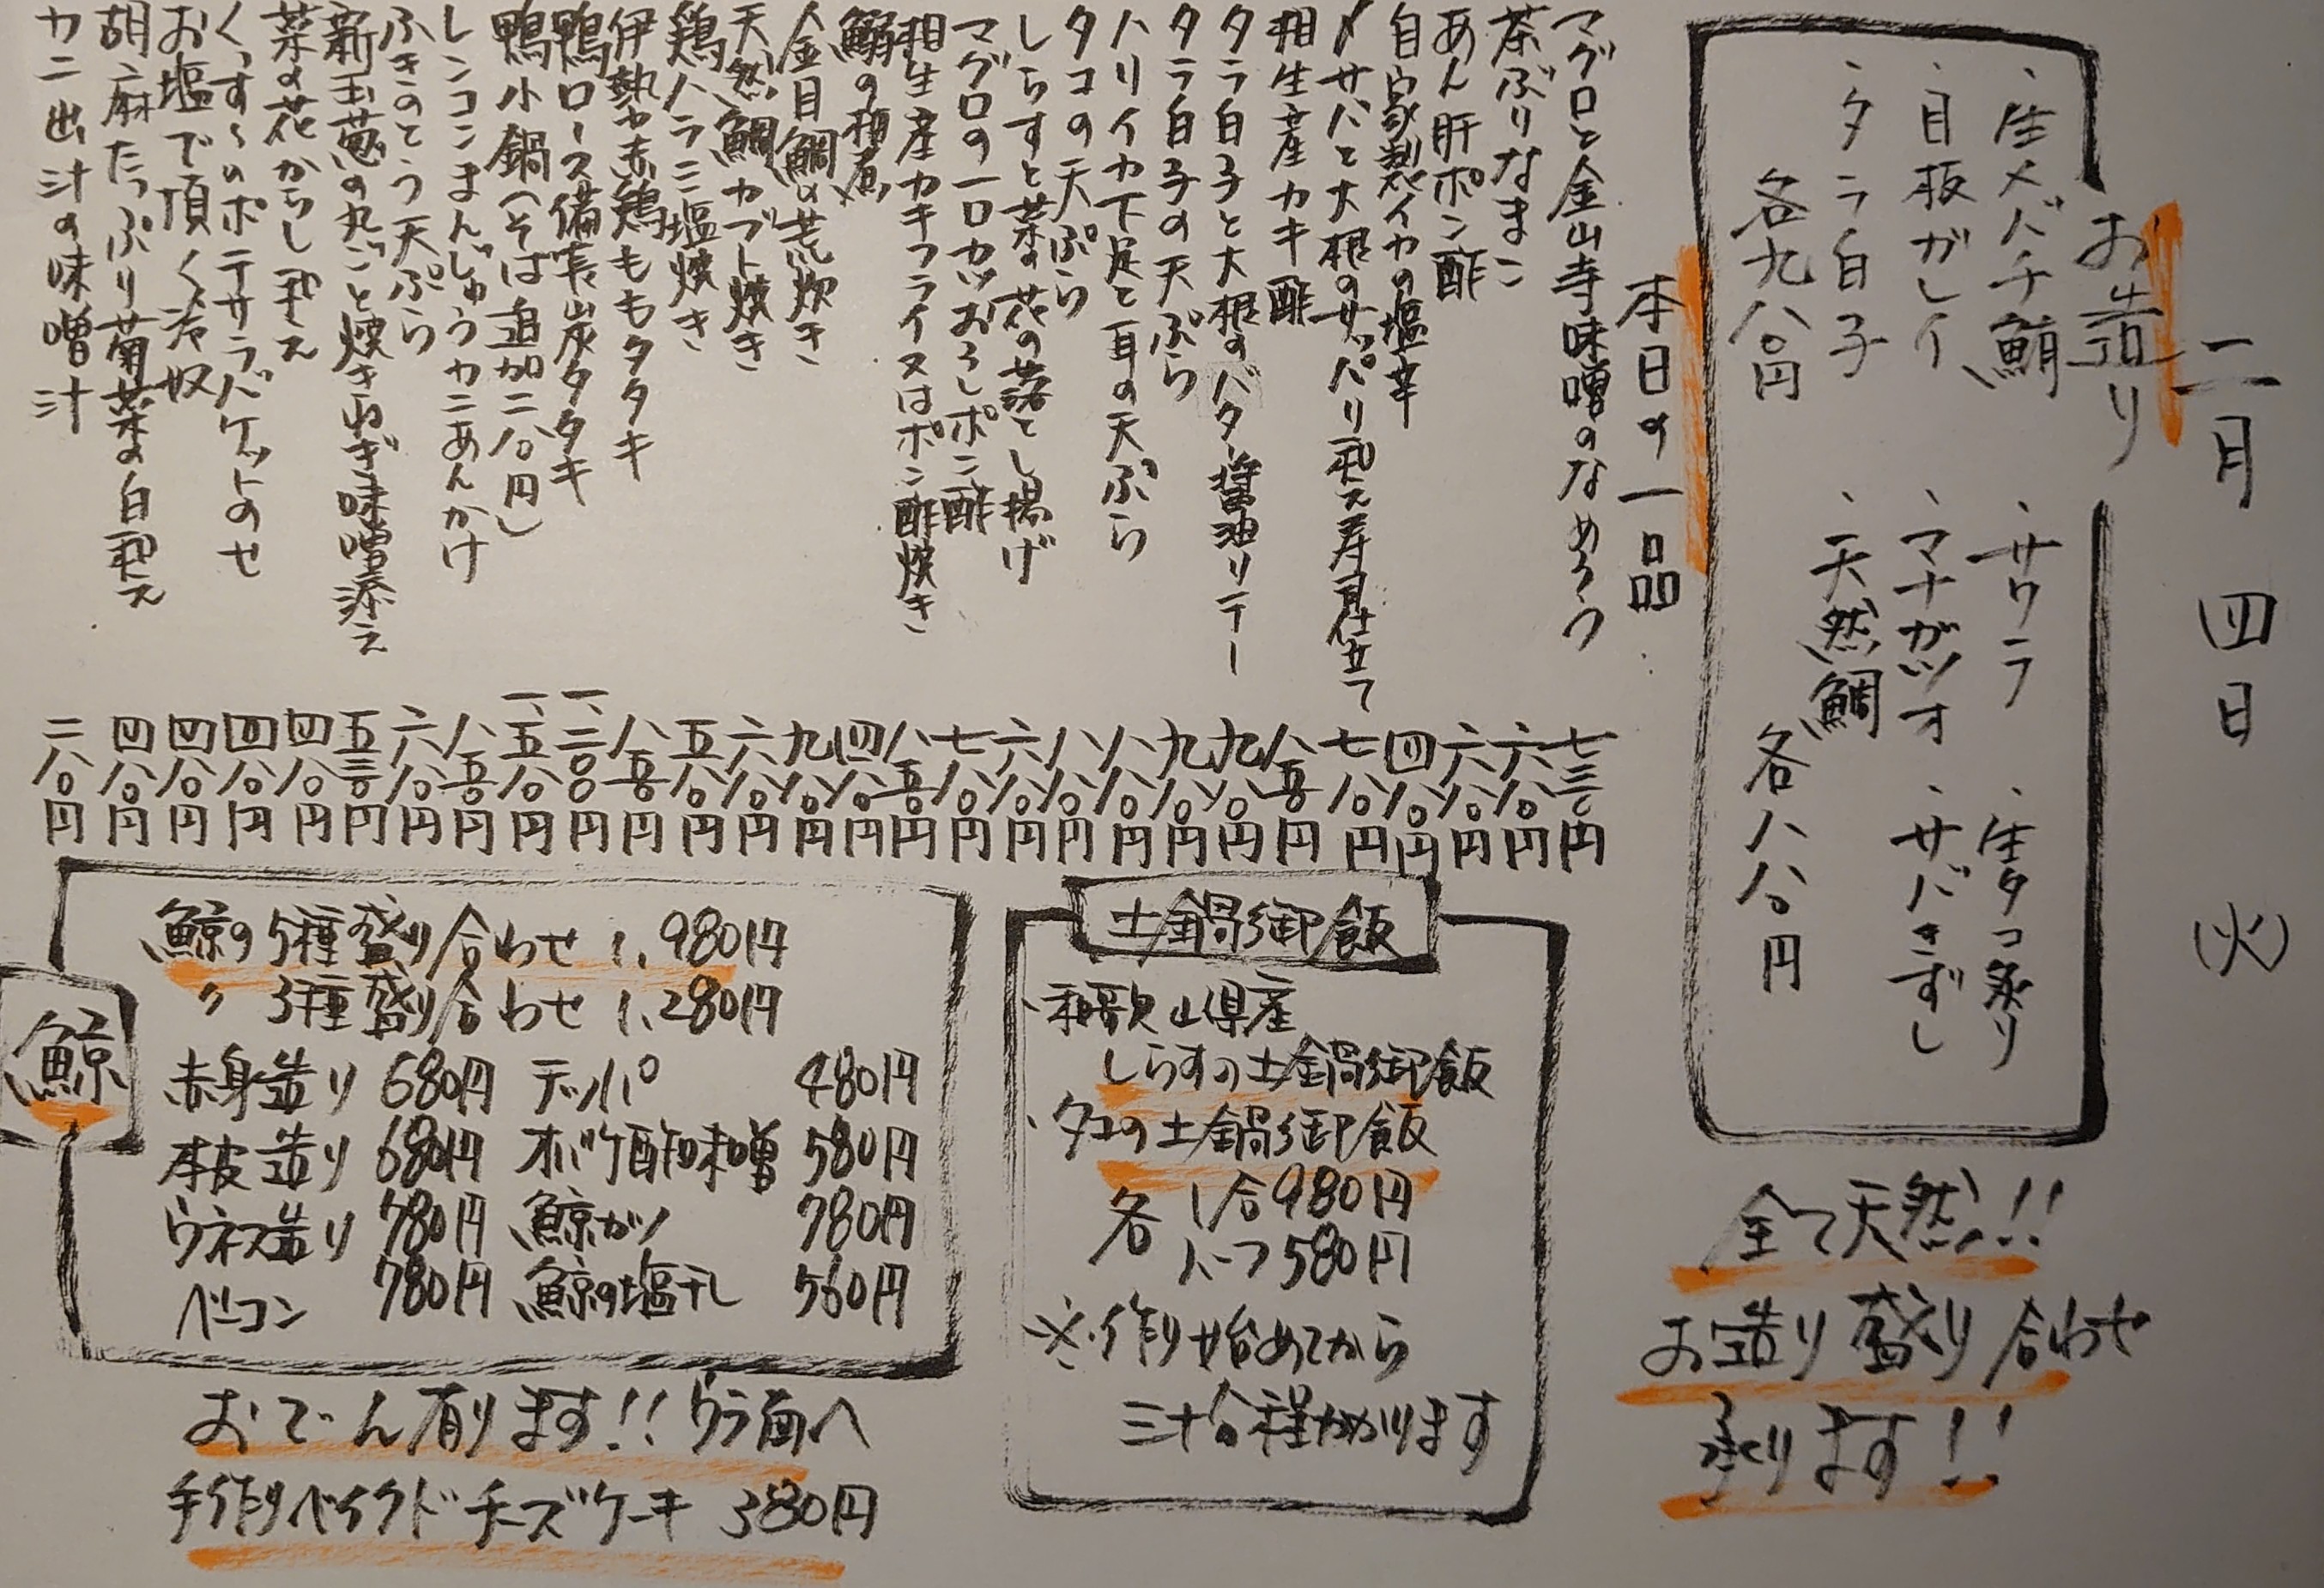 二月四日(火)
お造り
・生メバチ鮪
・目板ガレイ
・タラ白子
各九八〇円
・サワラ
・生タコ炙り
・マナガツオ
・サバきずし
・天然鯛
各八八〇円
全て天然!!
お造り盛り合わせ
承ります!!
本日の一品
マグロと金山寺味噌のなめろう 七三〇円
茶ぶりなまこ 六八〇円
あん肝ポン酢 六八〇円
自家製イカの塩辛 四八〇円
〆サバと大根のサッパリ和え寿司仕立て 七八〇円
相生産カキ酢 八五〇円
タラ白子と大根のバター醤油ソテー 九八〇円
タラ白子の天ぷら 九八〇円
ハリイカ下足と耳の天ぷら 八八〇円
タコの天ぷら 八八〇円
しらすと菜の花の落とし揚げ 六八〇円
マグロの一口カツおろしポン酢 七八〇円
相生産カキフライ又はポン酢焼き 八五〇円
鰯の梅煮 四八〇円
金目鯛の荒炊き 九八〇円
天然鯛カブト焼き 六八〇円
鶏ハラミ塩焼き 五八〇円
伊勢赤鶏ももタタキ 八五〇円
鴨ロース備長炭タタキ 一、二〇〇円
鴨小鍋(そば追加二八〇円) 一、五八〇円
レンコンまんじゅうカニあんかけ 八五〇円
ふきのとう天ぷら 六八〇円
新玉葱の丸ごと焼きねぎ味噌添え 五三〇円
菜の花からし和え 四八〇円
くっす〜のポテサラバゲットのせ 四八〇円
お塩で頂く冷奴 四八〇円
胡麻たっぷり菊菜の白和え 四八〇円
カニ出汁の味噌汁 二八〇円
土鍋御飯
・和歌山県産
しらすの土鍋御飯
・タコの土鍋御飯
各 1合980円
ハーフ580円
※作り始めてから
三十分程かかります
鯨
鯨の5種盛り合わせ 1,980円
〃 3種盛り合わせ 1,280円
赤身造り 680円 テッパ 480円
本皮造り 680円 オバケ酢味噌 580円
ウネス造り 780円 鯨カツ 780円
ベーコン 780円 鯨の塩干し 560円
おでん有ります!!ウラ面へ
手作りベイクドチーズケーキ 380円